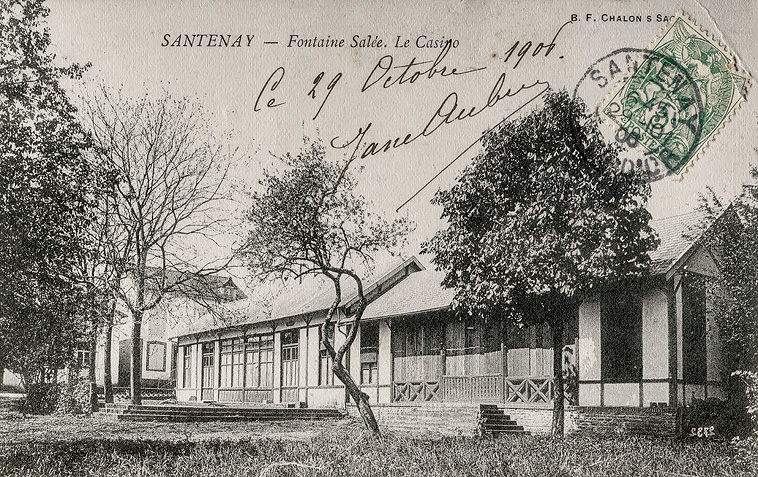 B. F. CHALON S SAO
SANTENAY — Fontaine Salée. Le Casino
Ce 29 Octobre 1906.
Jane Aubin
SANTENAY